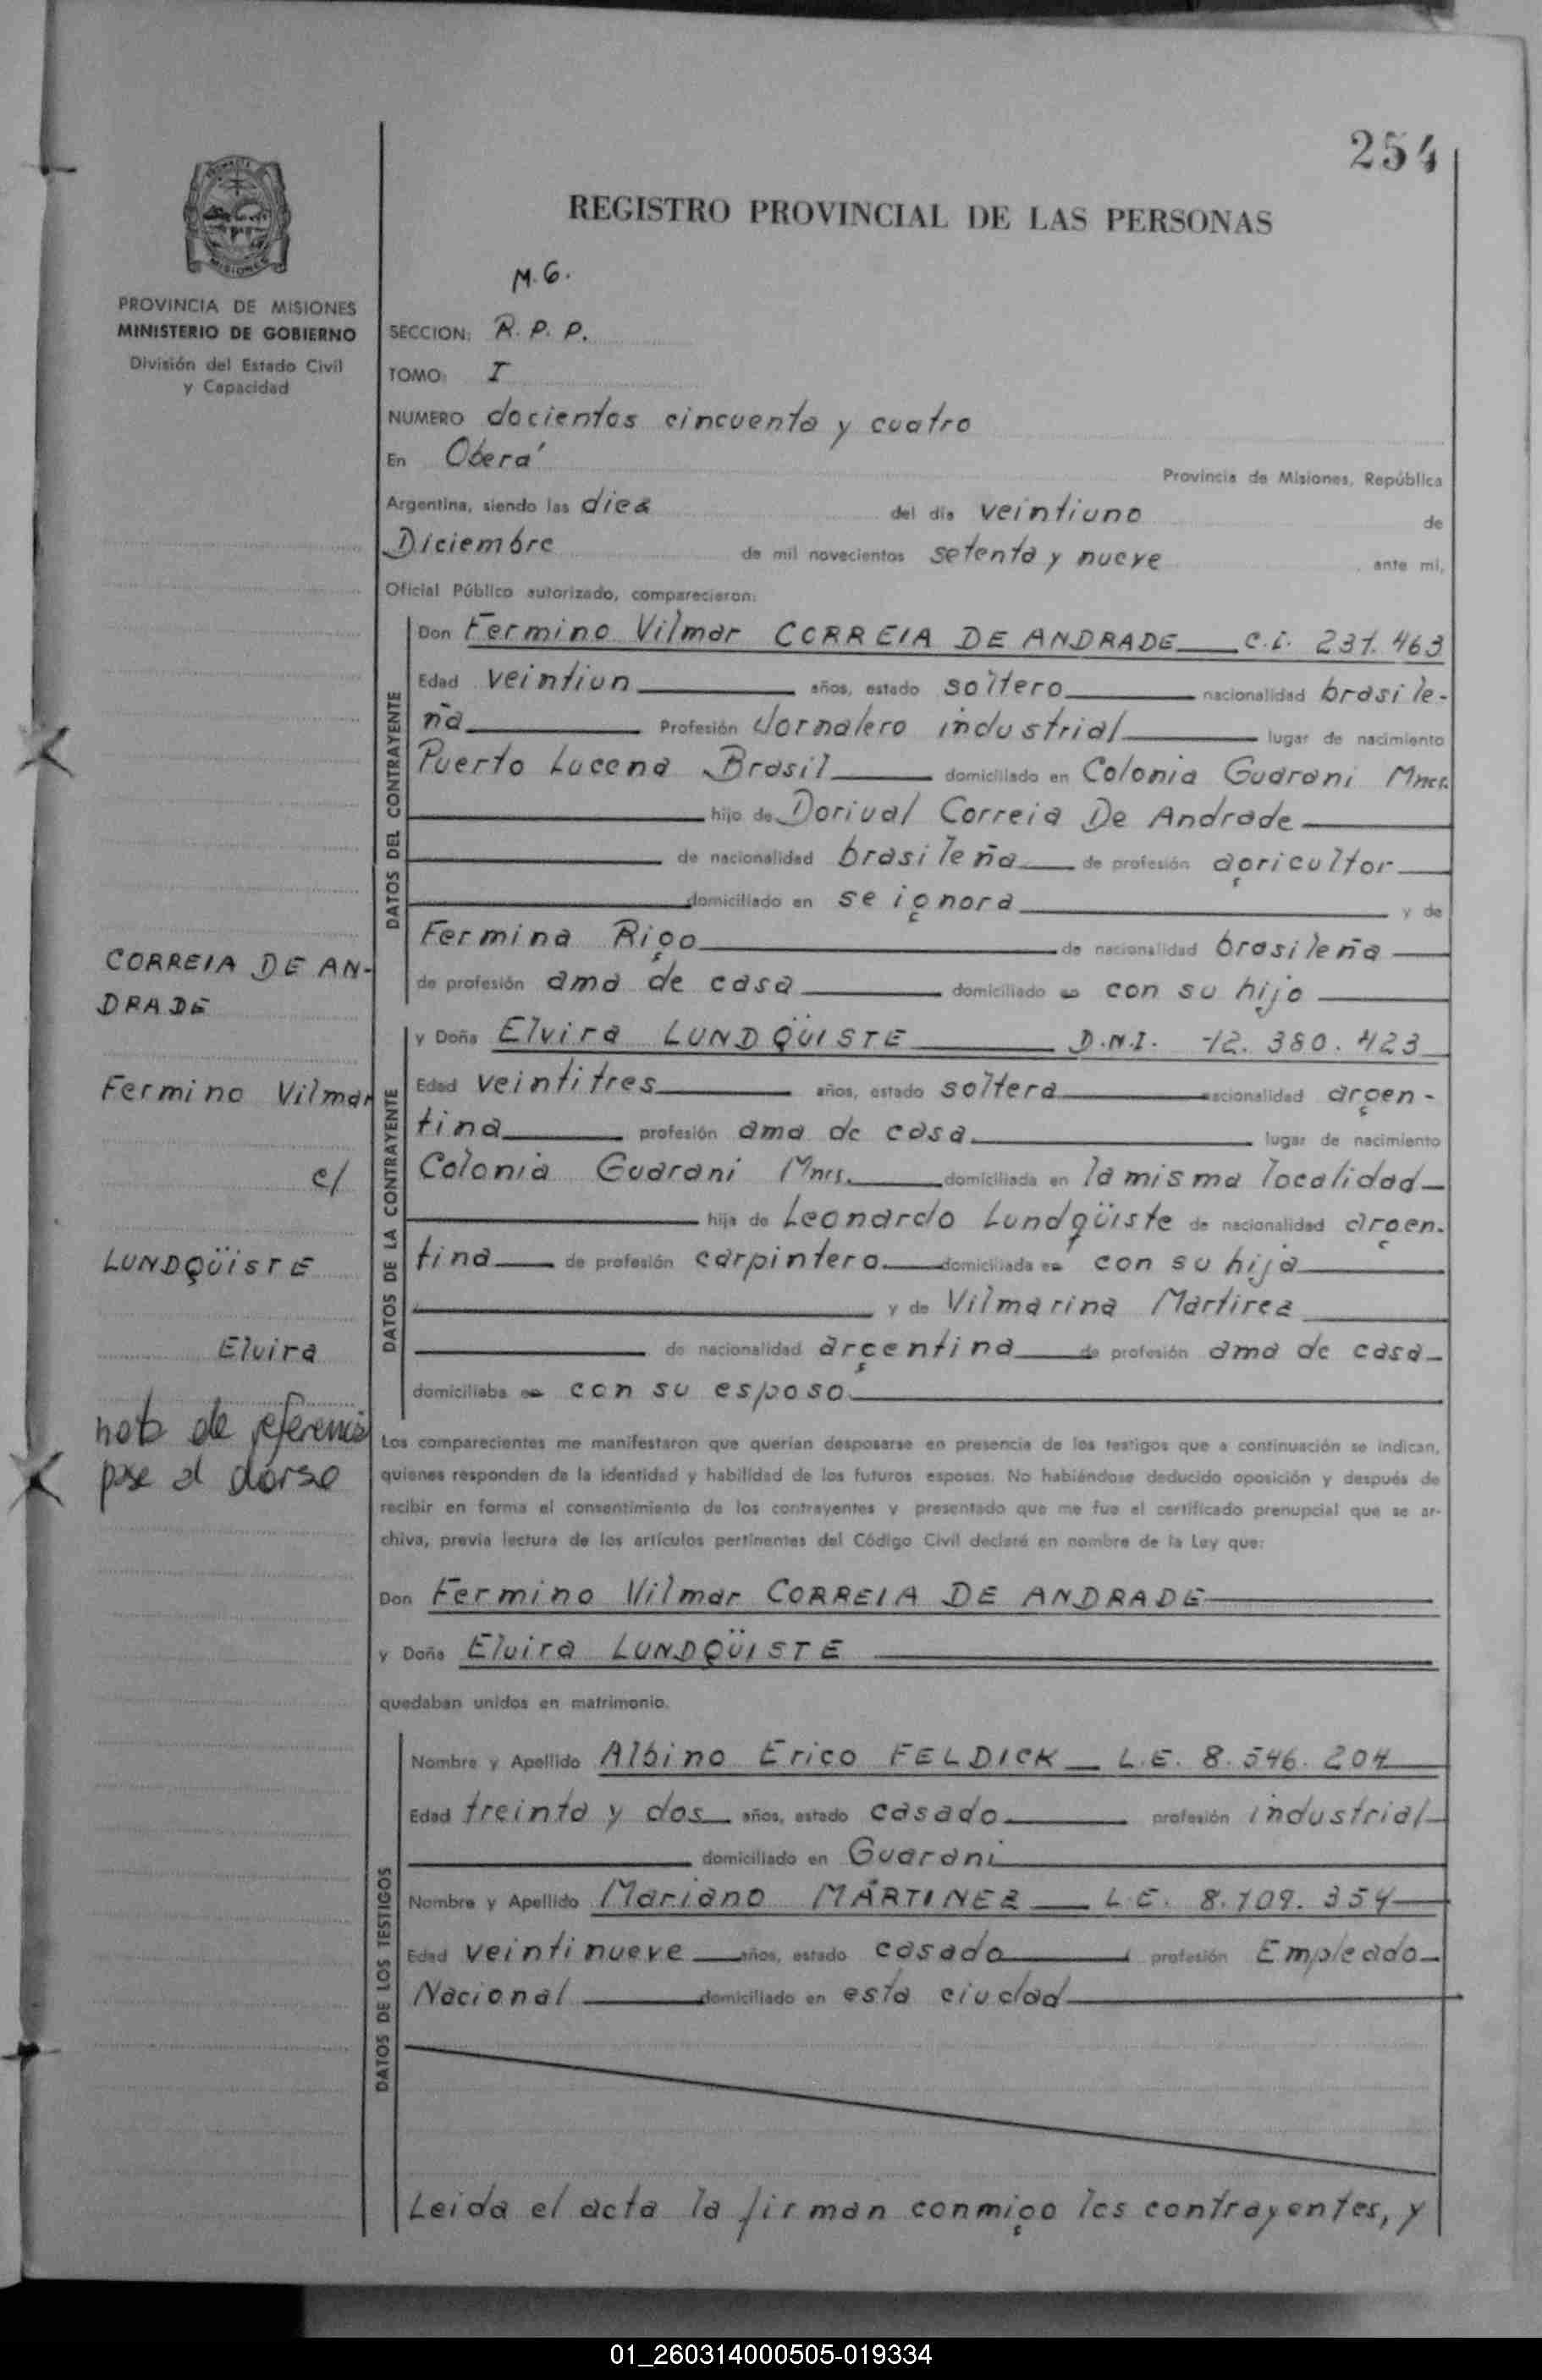 254
REGISTRO PROVINCIAL DE LAS PERSONAS
MISIONES
PROVINCIA DE MISIONES
MINISTERIO DE GOBIERNO
División del Estado Civil
y Capacidad
M. G.
SECCION: R. P. P.
TOMO: I
NUMERO docientos cincuenta y cuatro
En Oberá Provincia de Misiones, República
Argentina, siendo las diez del día veintiuno de
Diciembre de mil novecientos setenta y nueve ante mi,
Oficial Público autorizado, comparecieron:
DATOS DEL CONTRAYENTE
Don Fermino Vilmar CORREIA DE ANDRADE C.I. 231.463
Edad veintiun años, estado soltero nacionalidad brasile-
ña Profesión Jornalero industrial lugar de nacimiento
Puerto Lucena Brasil domiciliado en Colonia Guarani Mnes.
hijo de Dorival Correia De Andrade
de nacionalidad brasileña de profesión agricultor
domiciliado en se ignora y de
Fermina Rigo de nacionalidad brasileña
de profesión ama de casa domiciliado en con su hijo
CORREIA DE AN-
DRADE
Fermino Vilmar
c/
LUNDQÜISTE
Elvira
nota de referencia
pase al dorso
DATOS DE LA CONTRAYENTE
y Doña Elvira LUNDQÜISTE D.N.I. 12.380.423
Edad veintitres años, estado soltera nacionalidad argen-
tina profesión ama de casa lugar de nacimiento
Colonia Guarani Mnes. domiciliada en la misma localidad
hija de Leonardo Lundqüiste de nacionalidad argen-
tina de profesión carpintero domiciliada en con su hija
y de Vilmarina Martirez
de nacionalidad argentina de profesión ama de casa
domiciliaba en con su esposo
Los comparecientes me manifestaron que querían desposarse en presencia de los testigos que a continuación se indican,
quienes responden de la identidad y habilidad de los futuros esposos. No habiéndose deducido oposición y después de
recibir en forma el consentimiento de los contrayentes y presentado que me fue el certificado prenupcial que se ar-
chiva, previa lectura de los artículos pertinentes del Código Civil declaré en nombre de la Ley que:
Don Fermino Vilmar CORREIA DE ANDRADE
y Doña Elvira LUNDQÜISTE
quedaban unidos en matrimonio.
DATOS DE LOS TESTIGOS
Nombre y Apellido Albino Erico FELDICK L.E. 8.546.204
Edad treinta y dos años, estado casado profesión industrial
domiciliado en Guarani
Nombre y Apellido Mariano MARTINEZ L.E. 8.109.354
Edad veintinueve años, estado casado profesión Empleado
Nacional domiciliado en esta ciudad
Leida el acta la firman conmigo los contrayentes, y
01_260314000505-019334